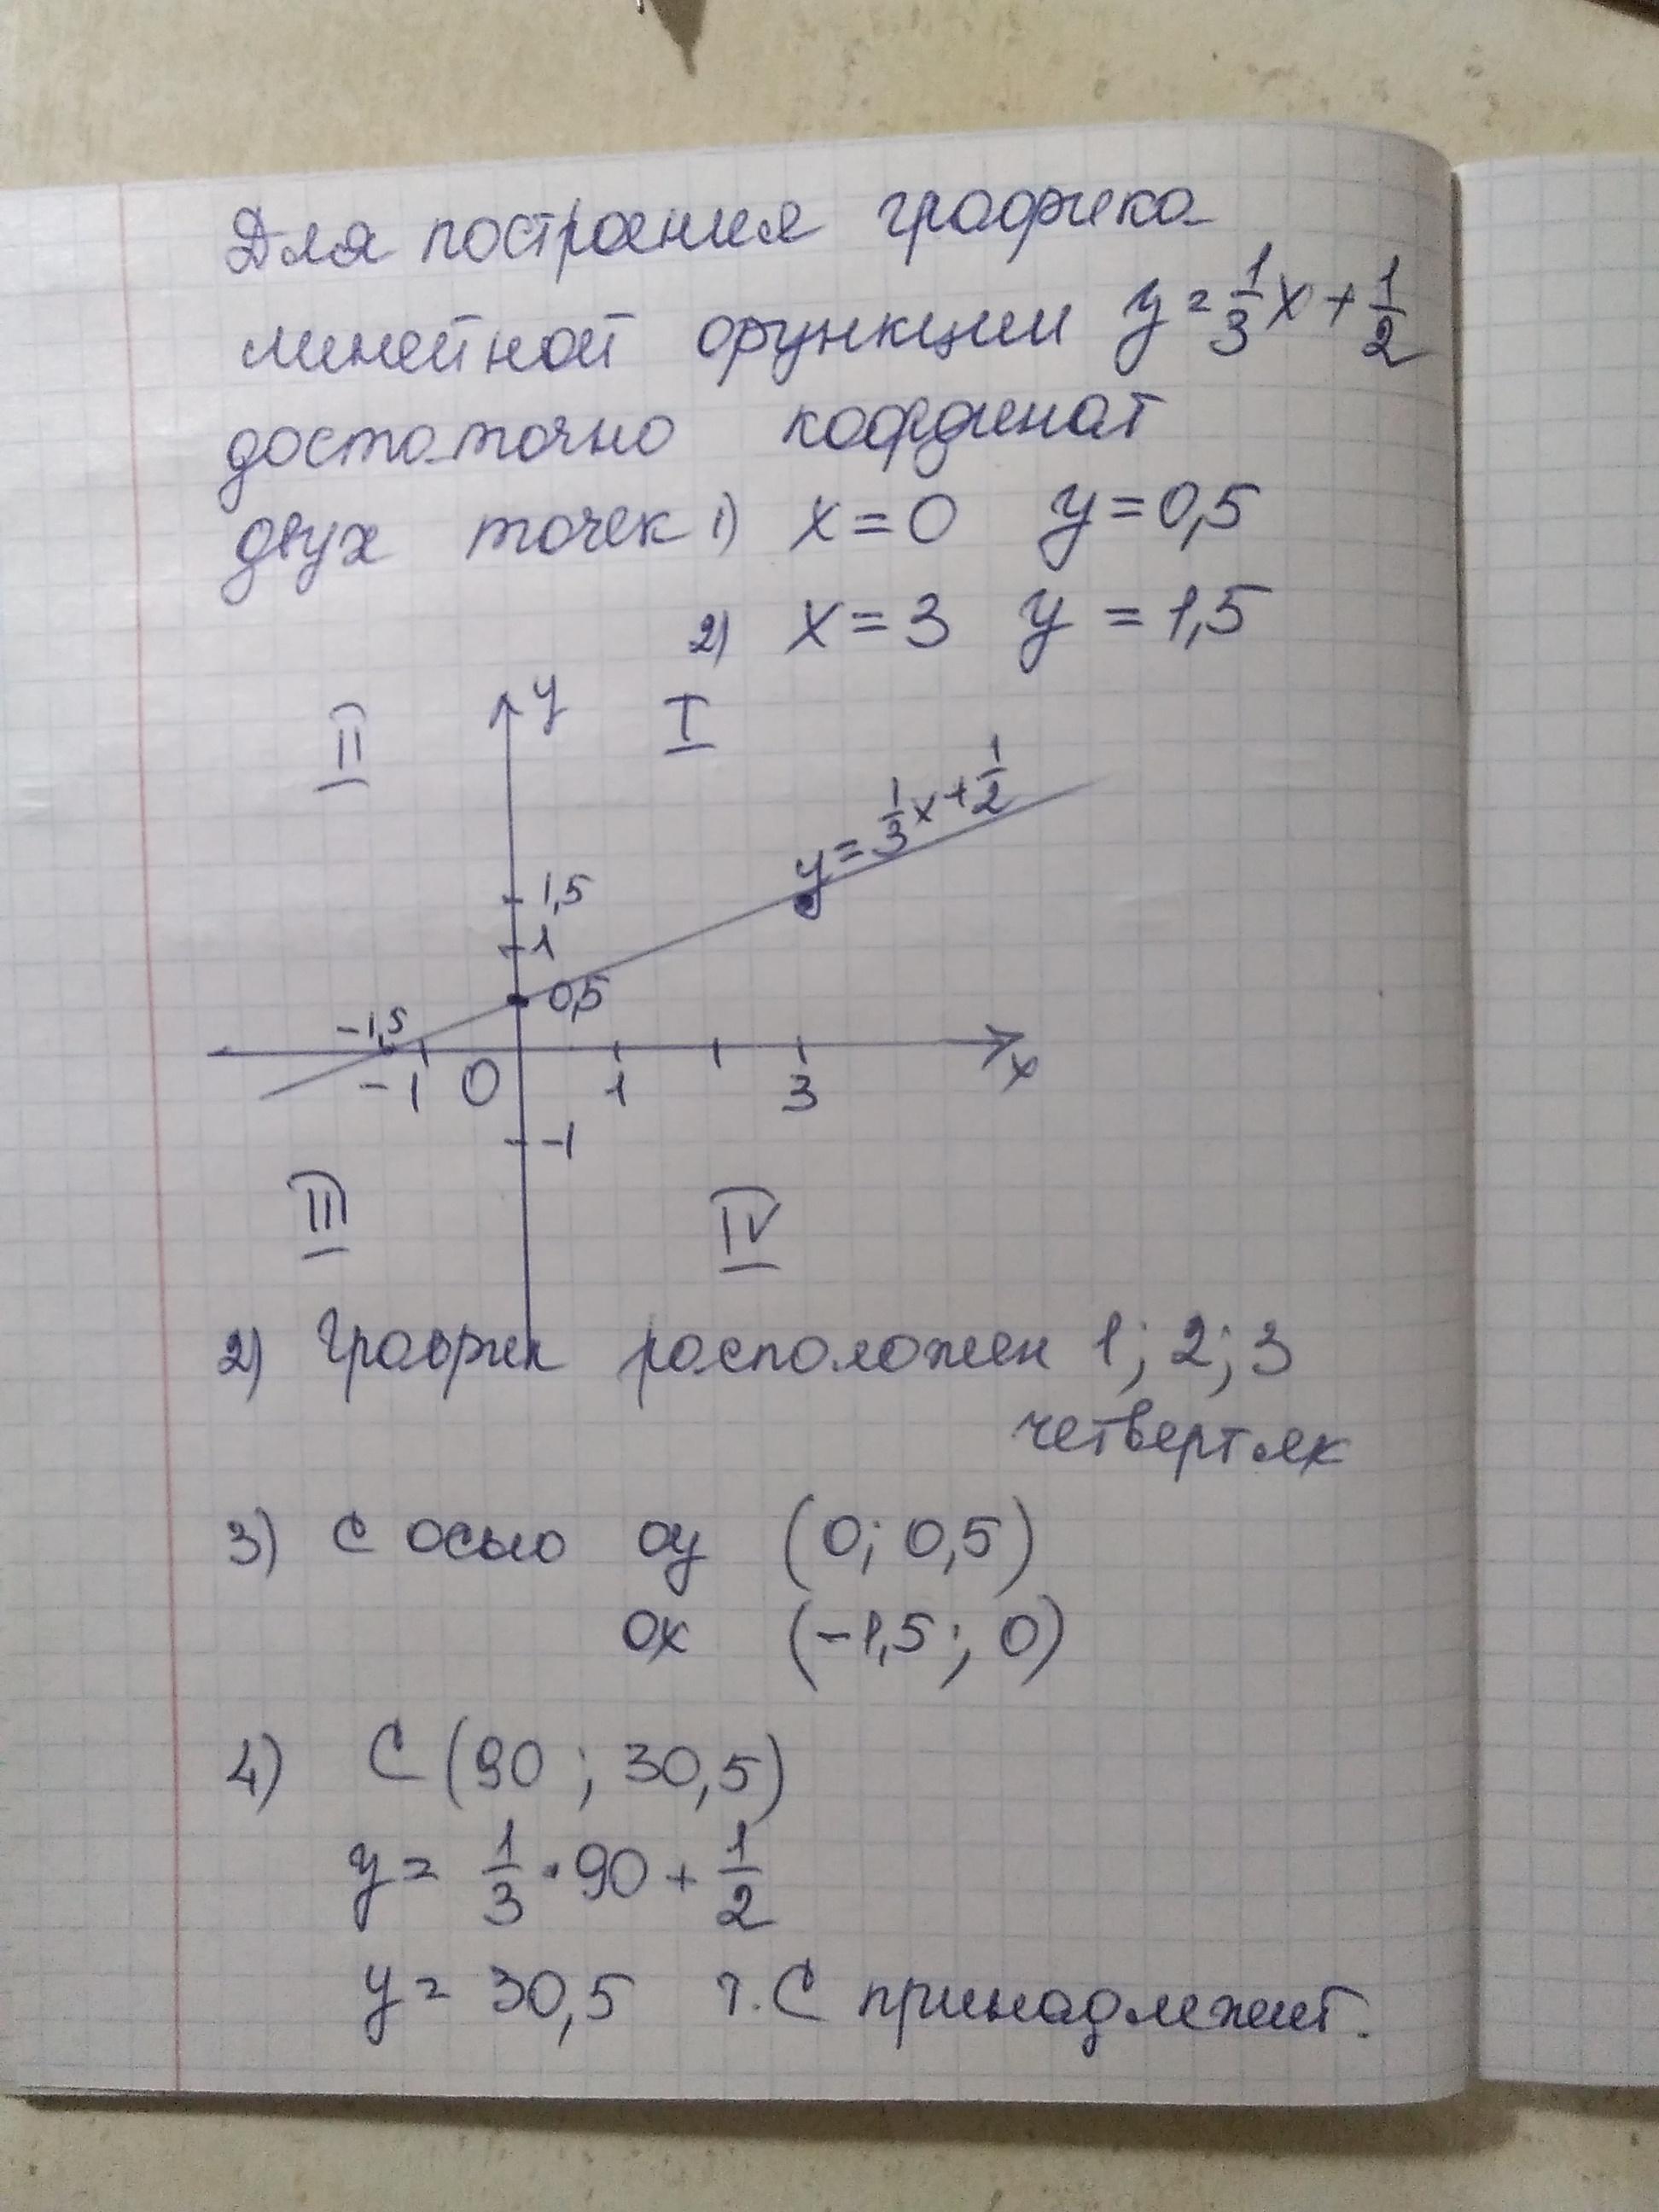 Для построения графика
линейной функции y = 1/3 x + 1/2
достаточно координат
двух точек 1) x = 0 y = 0,5
2) x = 3 y = 1,5
y
II I
y = 1/3 x + 1/2
1,5
1
0,5
-1,5
-1 0 1 3 x
-1
III IV
2) График расположен 1; 2; 3
четвертях
3) С осью оу (0; 0,5)
ох (-1,5; 0)
4) С (90; 30,5)
y = 1/3 · 90 + 1/2
y = 30,5 т. С принадлежит.